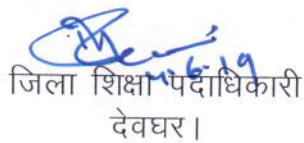 4-6-19
जिला शिक्षा पदाधिकारी
देवघर।